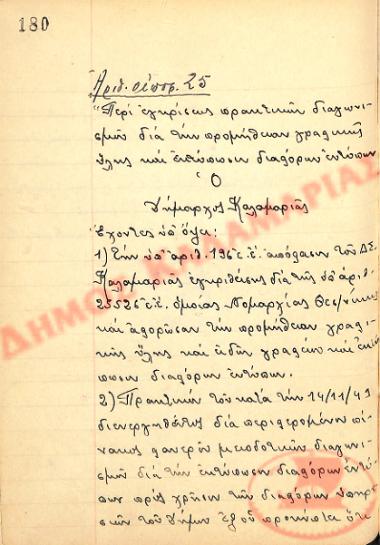 180
Ἀριθ. ἀποφ. 25
"Περὶ ἐγκρίσεως πρακτικῶν διαγωνι-
σμῶν διὰ τὴν προμήθειαν γραφικῆς
ὕλης καὶ ἐκτύπωσιν διαφόρων ἐντύπων
Ὁ
Δήμαρχος Καλαμαριᾶς
Ἔχοντες ὑπ' ὄψει:
1) Τὴν ὑπ' ἀριθ. 196 ἐ.ἔ. ἀπόφασιν τοῦ Δ.Σ.
Καλαμαριᾶς ἐγκριθεῖσης διὰ τῆς ὑπ' ἀριθ.
25526 ἐ.ἔ. ὁμοίας Νομαρχίας Θεσ/νίκης
καὶ ἀφορῶσαν τὴν προμήθειαν γραφι-
κῆς ὕλης καὶ εἰδῶν γραφείου καὶ ἐκτύ-
πωσιν διαφόρων ἐντύπων.
2) Πρακτικὸν τοῦ κατὰ τὴν 14/11/49
διενεργηθέντος διὰ περιφερομένου πί-
νακος φανεροῦ μειοδοτικοῦ διαγωνι-
σμοῦ διὰ τὴν ἐκτύπωσιν διαφόρων ἐντύ-
πων πρὸς χρῆσιν τῶν διαφόρων ὑπηρε-
σιῶν τοῦ Δήμου ἐξ οὗ προκύπτει ὅτι
ΔΗΜΟΣ ΚΑΛΑΜΑΡΙΑΣ